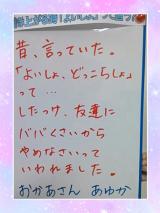 昔、言っていた。
「よいしょ、どっこらしょ」
って…
したっけ、友達に
ババくさいから
やめなさいって
いわれました。
おかあさん あゆか